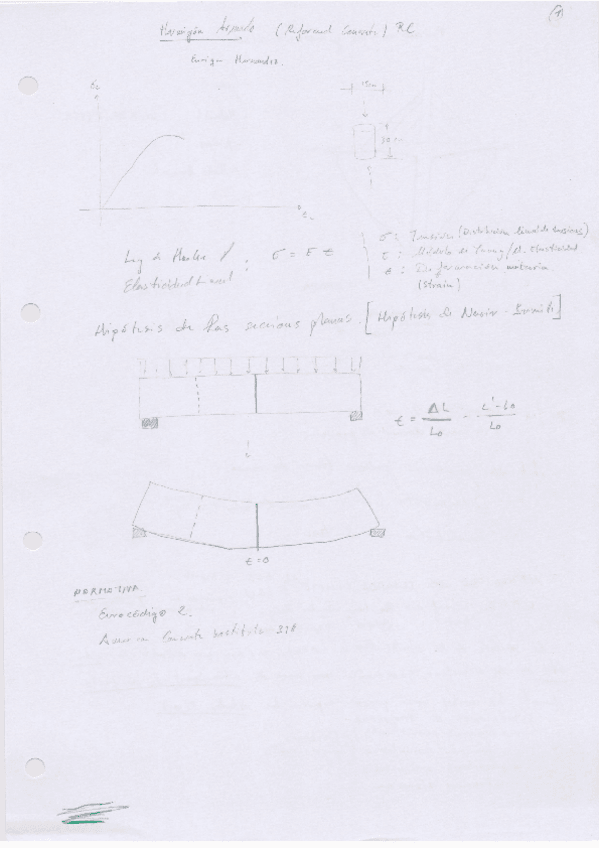 (1)
Hormigón Armado (Reforced Concrete) RC
Enrique Hernández.
15cm
σc
30 cm
εc
Ley de Hooke / : σ = E ε
Elasticidad Lineal
σ : Tensión (Distribución lineal de tensiones)
E : Módulo de Young / M. Elasticidad
ε : Deformación unitaria
(Strain)
Hipótesis de las secciones planas. [Hipótesis de Navier-
ε = ΔL / L0 = L' - L0 / L0
ε=0
NORMATIVA
Eurocódigo 2.
American Concrete Institute 318